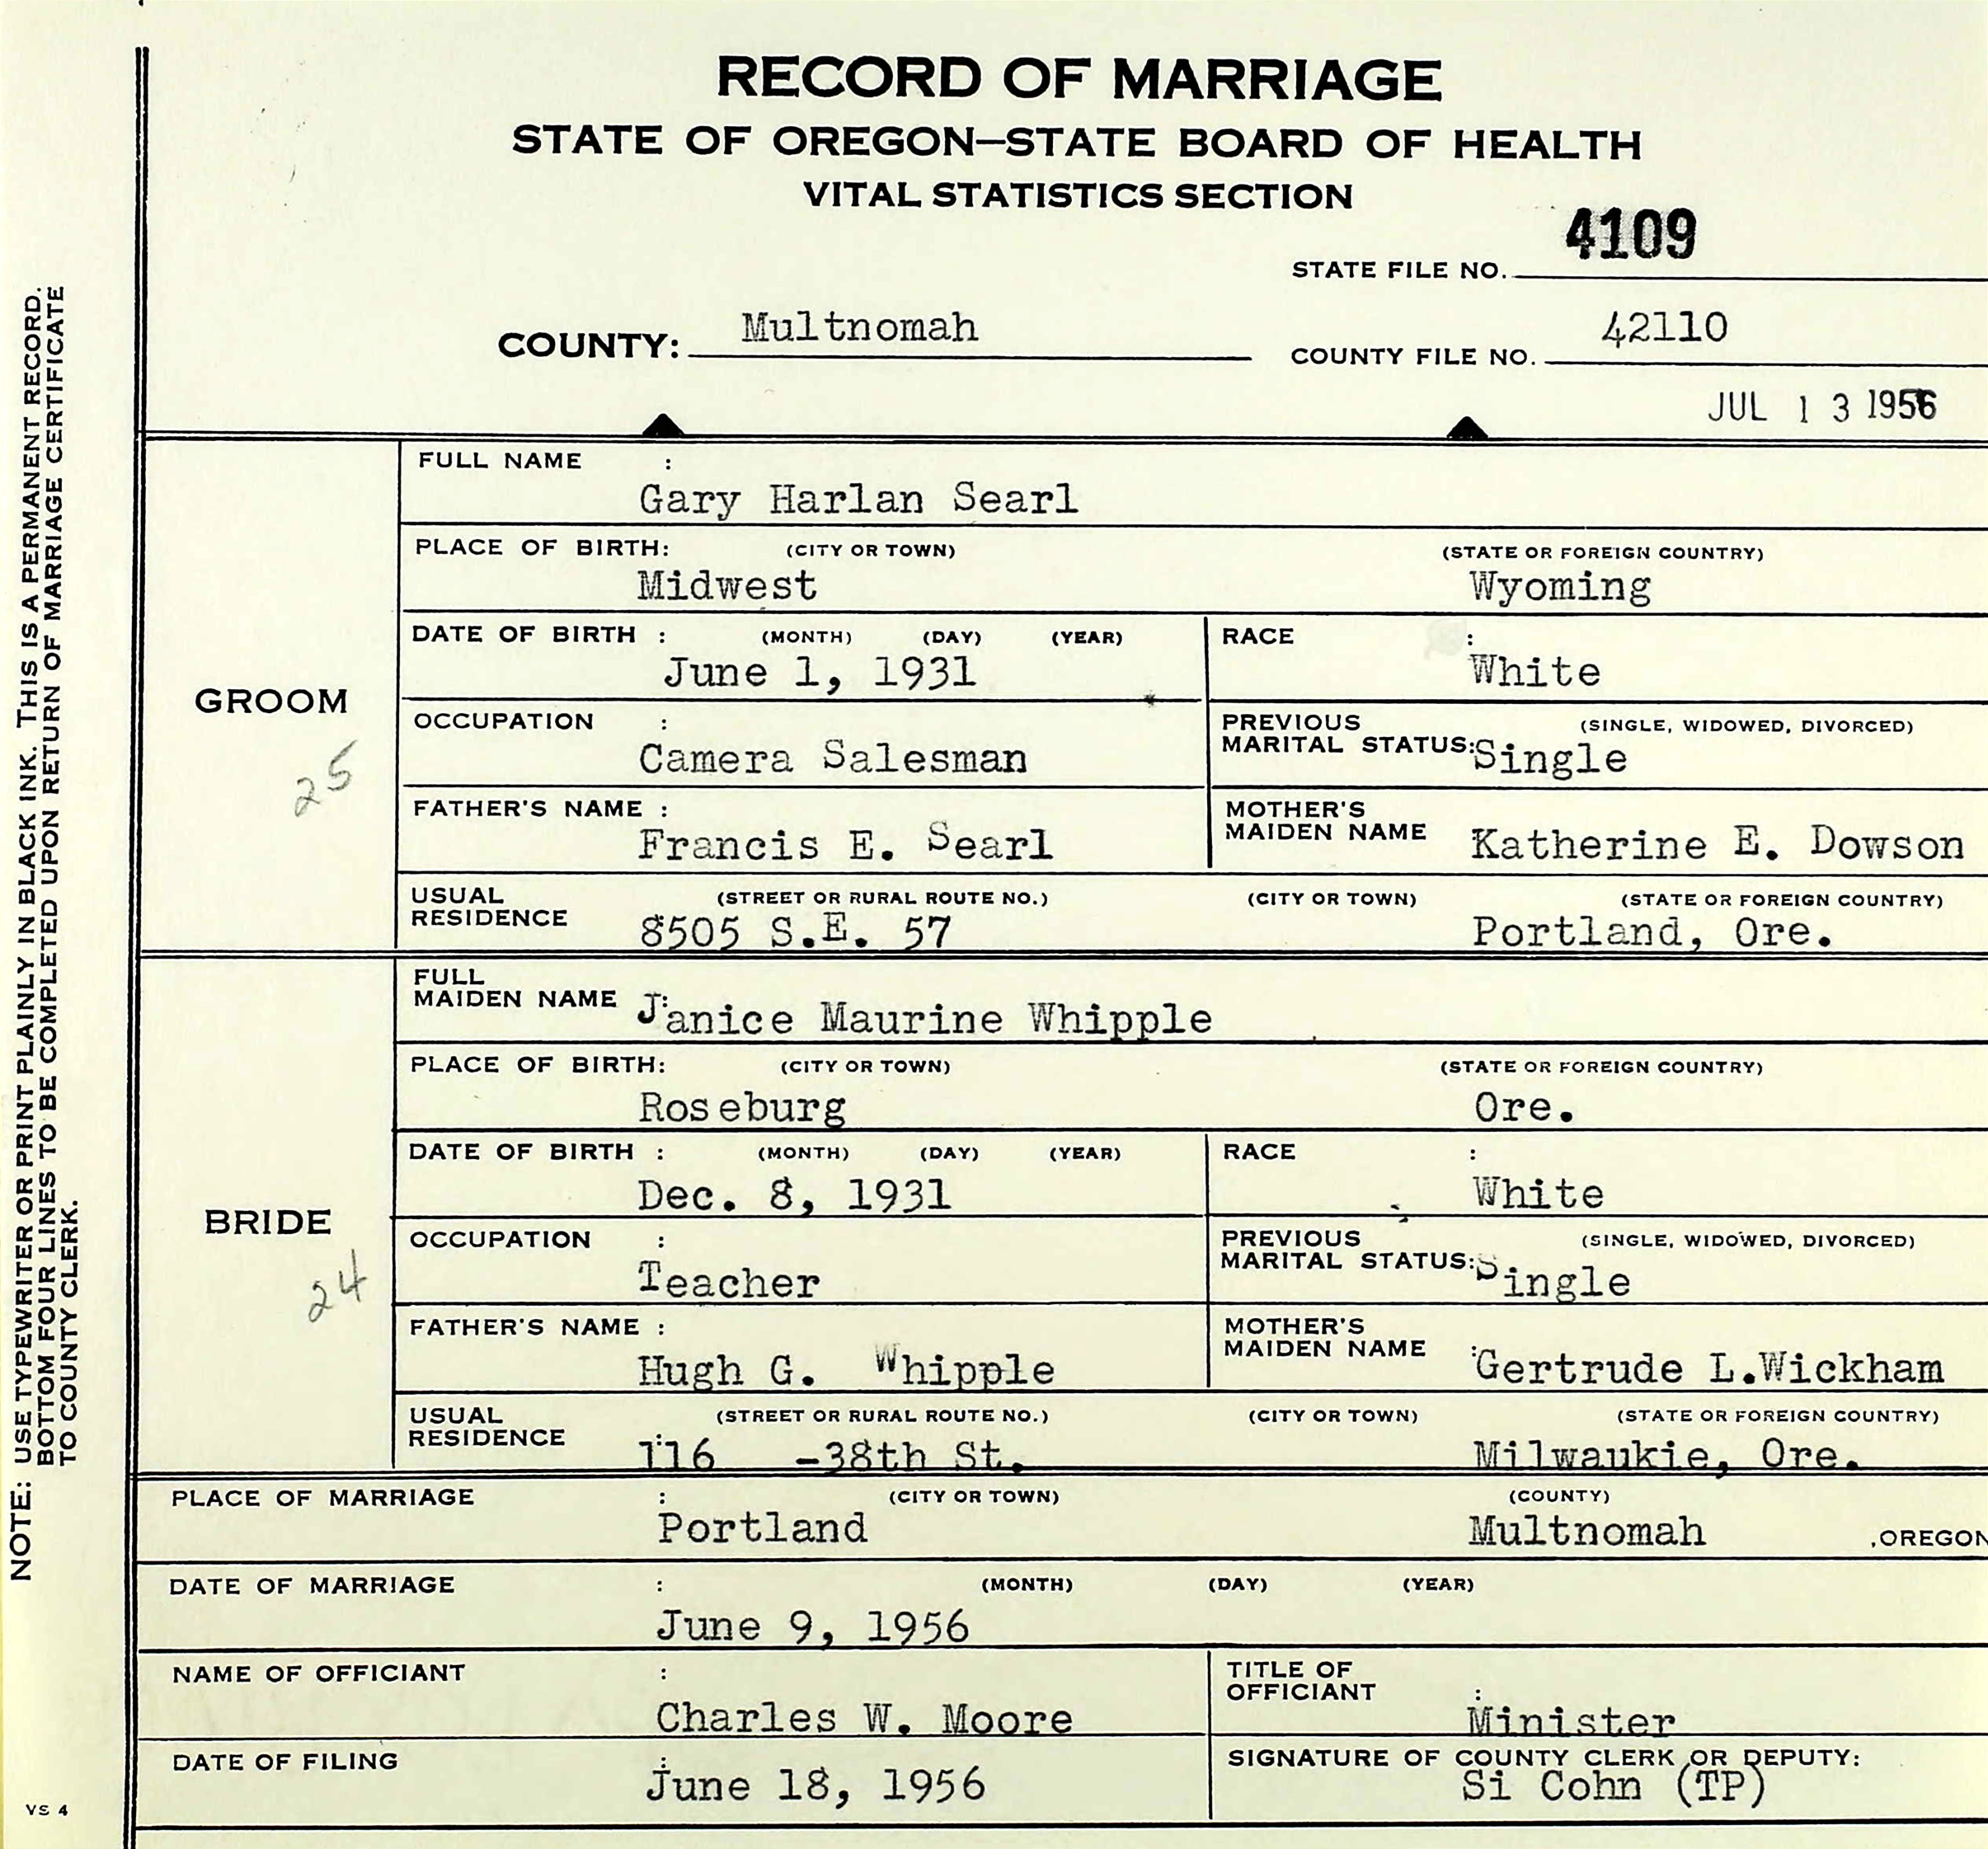 RECORD OF MARRIAGE
STATE OF OREGON—STATE BOARD OF HEALTH
VITAL STATISTICS SECTION
4109
STATE FILE NO.
COUNTY: Multnomah
COUNTY FILE NO. 42110
JUL 13 1956
GROOM
25
FULL NAME :
Gary Harlan Searl
PLACE OF BIRTH: (CITY OR TOWN) (STATE OR FOREIGN COUNTRY)
Midwest Wyoming
DATE OF BIRTH : (MONTH) (DAY) (YEAR) RACE :
June 1, 1931 White
OCCUPATION : PREVIOUS MARITAL STATUS: (SINGLE, WIDOWED, DIVORCED)
Camera Salesman Single
FATHER'S NAME : MOTHER'S MAIDEN NAME
Francis E. Searl Katherine E. Dowson
USUAL RESIDENCE (STREET OR RURAL ROUTE NO.) (CITY OR TOWN) (STATE OR FOREIGN COUNTRY)
8505 S.E. 57 Portland, Ore.
BRIDE
24
FULL MAIDEN NAME :
Janice Maurine Whipple
PLACE OF BIRTH: (CITY OR TOWN) (STATE OR FOREIGN COUNTRY)
Roseburg Ore.
DATE OF BIRTH : (MONTH) (DAY) (YEAR) RACE :
Dec. 8, 1931 White
OCCUPATION : PREVIOUS MARITAL STATUS: (SINGLE, WIDOWED, DIVORCED)
Teacher Single
FATHER'S NAME : MOTHER'S MAIDEN NAME :
Hugh G. Whipple Gertrude L.Wickham
USUAL RESIDENCE : (STREET OR RURAL ROUTE NO.) (CITY OR TOWN) (STATE OR FOREIGN COUNTRY)
116 -38th St. Milwaukie, Ore.
PLACE OF MARRIAGE : (CITY OR TOWN) (COUNTY)
Portland Multnomah ,OREGON
DATE OF MARRIAGE : (MONTH) (DAY) (YEAR)
June 9, 1956
NAME OF OFFICIANT : TITLE OF OFFICIANT :
Charles W. Moore Minister
DATE OF FILING : SIGNATURE OF COUNTY CLERK OR DEPUTY:
June 18, 1956 Si Cohn (TP)
NOTE: USE TYPEWRITER OR PRINT PLAINLY IN BLACK INK. THIS IS A PERMANENT RECORD.
BOTTOM FOUR LINES TO BE COMPLETED UPON RETURN OF MARRIAGE CERTIFICATE
TO COUNTY CLERK.
VS 4